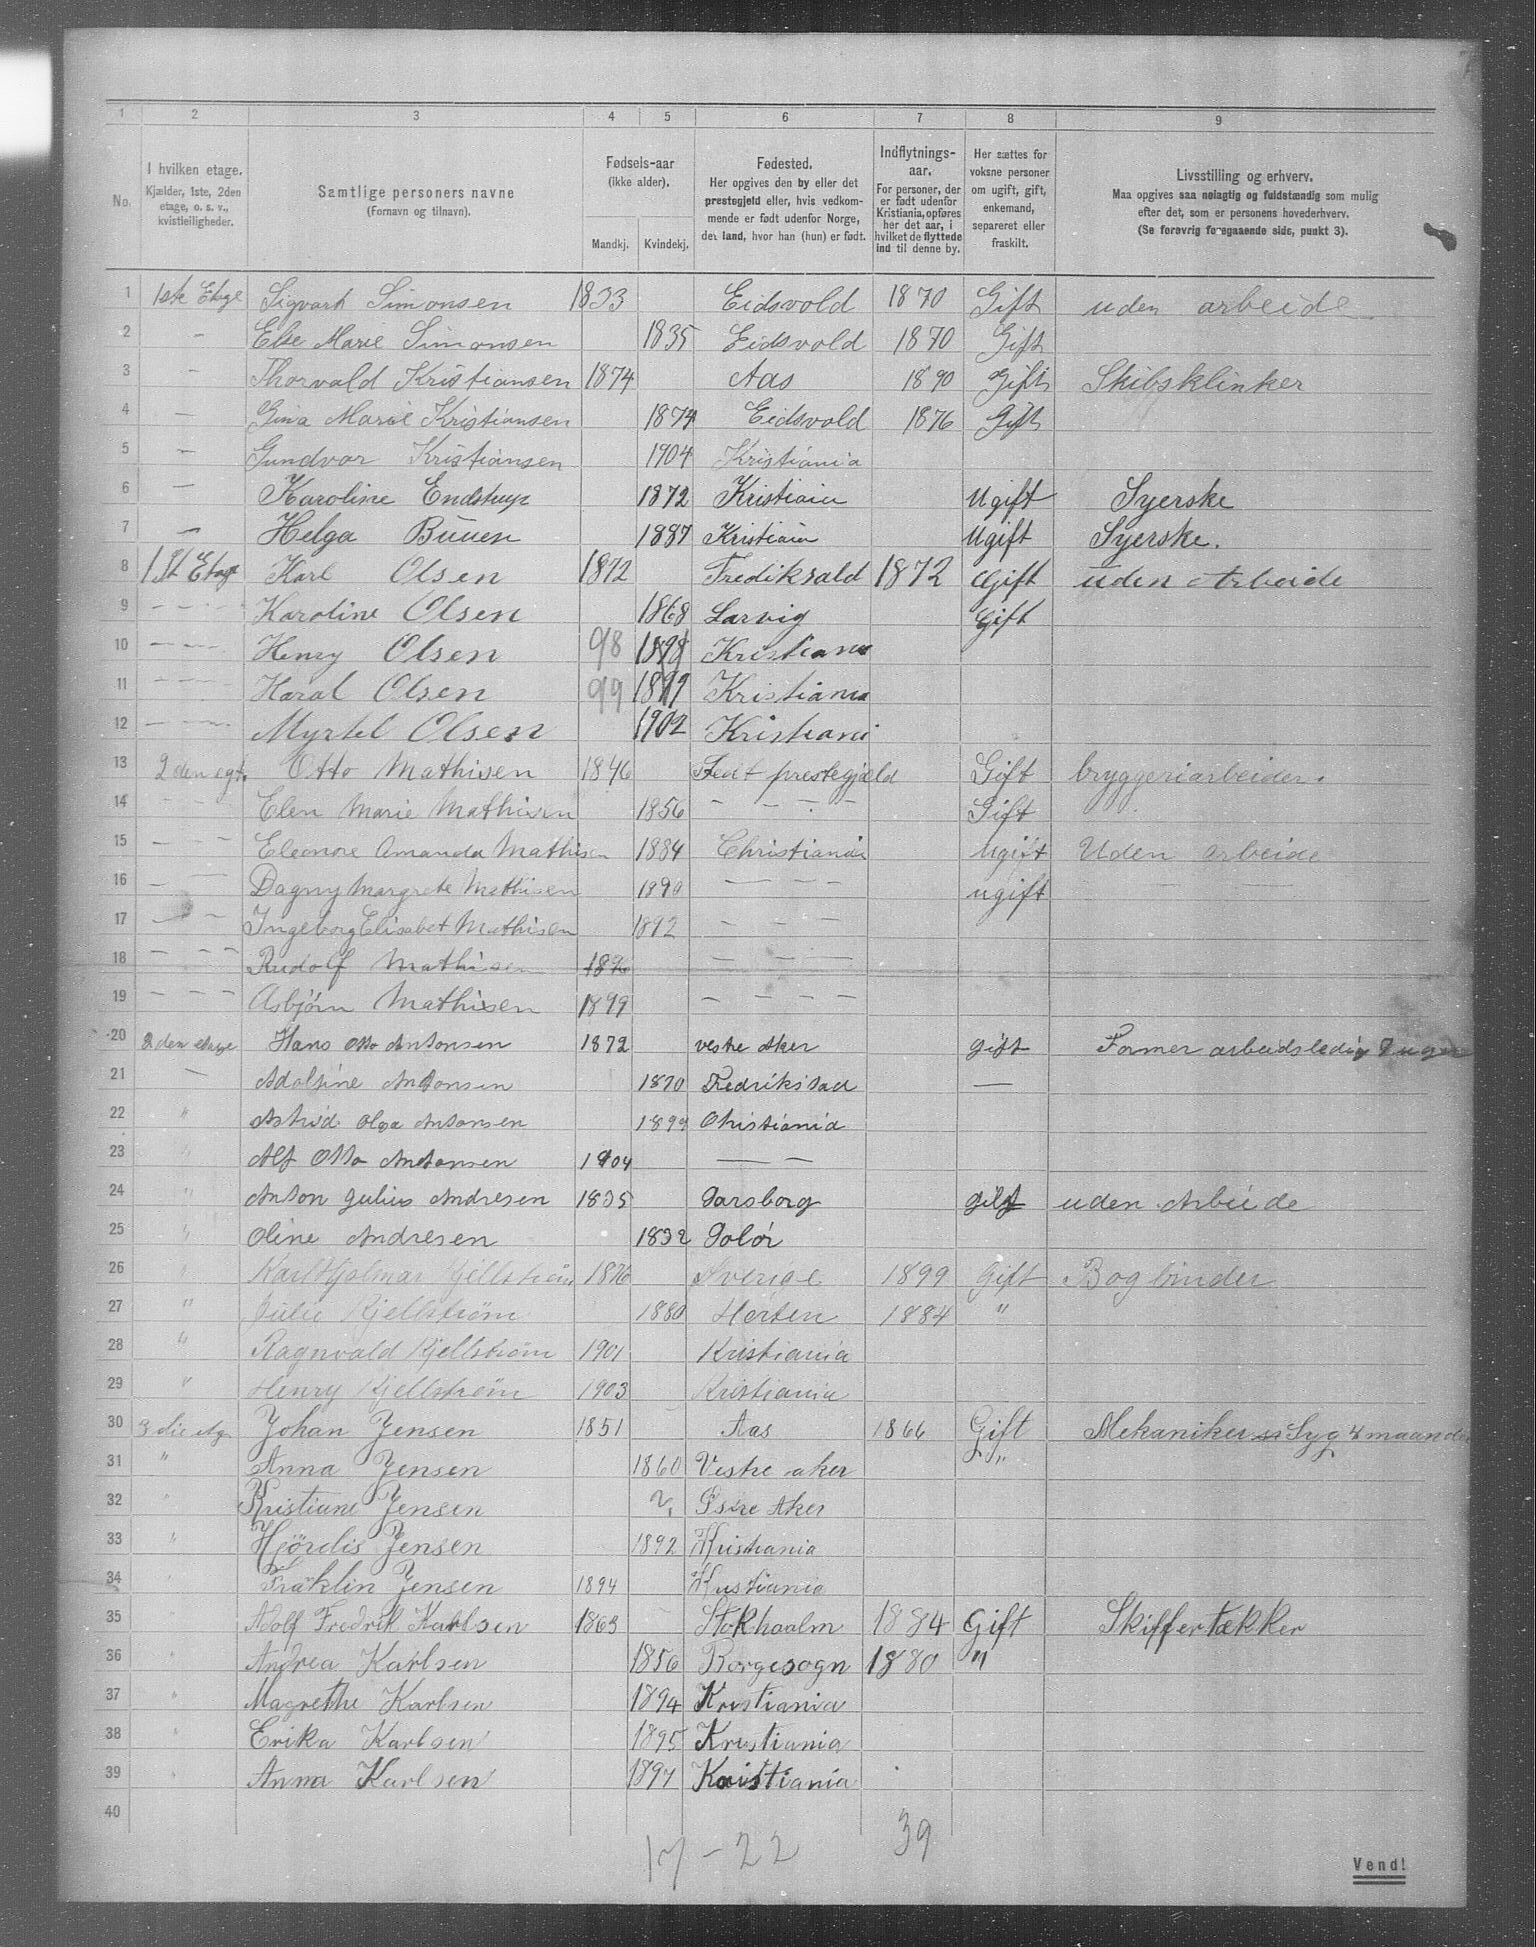 1 2 3 4 5 6 7 8 9
No.
I hvilken etage.
Kjælder, 1ste, 2den
etage, o. s. v.,
kvistleiligheder.
Samtlige personers navne
(Fornavn og tilnavn).
Fødsels-aar
(ikke alder).
Mandkj. Kvindekj.
Fødested.
Her opgives den by eller det
prestegjeld eller, hvis vedkom-
mende er født udenfor Norge,
det land, hvor han (hun) er født.
Indflytnings-
aar.
For personer, der
er født udenfor
Kristiania, opføres
her det aar, i
hvilket de flyttede
ind til denne by.
Her sættes for
voksne personer
om ugift, gift,
enkemand,
separeret eller
fraskilt.
Livsstilling og erhverv.
Maa opgives saa nøiagtig og fuldstændig som mulig
efter det, som er personens hovederhverv.
(Se forøvrig foregaaende side, punkt 3).
1 1ste Etage Sigvart Simonsen 1833 Eidsvold 1870 Gift uden arbeide
2 – Else Marie Simonsen 1835 Eidsvold 1870 Gift
3 – Thorvald Kristiansen 1874 Aas 1890 Gift Skibsklinker
4 – Gina Marie Kristiansen 1874 Eidsvold 1876 Gift
5 – Gundvor Kristiansen 1904 Kristiania
6 – Karoline Endstrup 1872 Kristiania Ugift Syerske
7 – Helga Buuen 1887 Kristiania Ugift Syerske.
8 1st Etage Karl Olsen 1872 Frediksald 1872 Gift uden Arbeide
9 – – – Karoline Olsen 1868 Larvig Gift
10 – – – Henry Olsen 98 1898 Kristiania
11 – – – Haral Olsen 99 1899 Kristiania
12 – – – Myrtel Olsen 1902 Kristiani
13 2den egt. Otto Mathisen 1846 Fedt prestegjæld Gift bryggeriarbeider.
14 – – Elen Marie Mathisen 1856 – – – – Gift
15 – – – Eleonore Amanda Mathisen 1884 Christiania Ugift Uden arbeide
16 – – Dagny Margrete Mathisen 1890 – – – ugift – – –
17 – – – Ingeborg Elisabet Mathisen 1892 – – –
18 – – – Rudolf Mathisen 1896 – – –
19 – – – Asbjørn Mathisen 1899 – – – –
20 2den etage Hans Otto Antonsen 1872 vestre Aker gift Former arbeidsledig
21 – Adolfine Antonsen 1870 Fredrikstad –
22 " Astrid Olga Antonsen 1899 Christiania
23 " Alf Otto Antonsen 1904 – –
24 " Anton Julius Andresen 1835 gift uden Arbeide
25 " Oline Andresen 1832 Solør
26 " Karl Hjalmar Kjellstrøm 1876 Sverige 1899 Gift Bogbinder
27 " Julie Kjellstrøm 1880 Horten 1884 "
28 " Ragnvald Kjellstrøm 1901 Kristiania
29 " Henry Kjellstrøm 1903 Kristiania
30 3die etg Johan Jensen 1851 Aas 1866 Gift Mekaniker Syg 4 maaneder
31 " Anna Jensen 1860 Vestre aker "
32 " Kristiane Jensen Østre Aker
33 " Hjördis Jensen 1892 Kristiania
34 " Fraklin Jensen 1894 Kristiania
35 " Adolf Fredrik Karlsen 1863 Stokhoalm 1884 Gift Skiffertækker
36 " Andrea Karlsen 1856 Borgesogn 1880 "
37 " Magrethe Karlsen 1894 Kristiania
38 " Erika Karlsen 1895 Kristiania
39 " Anna Karlsen 1897 Kristiania
40
17 – 22 39
Vend!